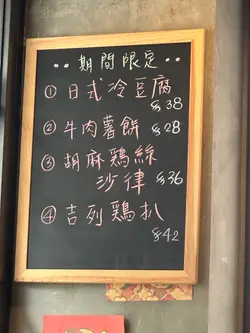 期間限定
① 日式冷豆腐
$38
② 牛肉薯餅 $28
③ 胡麻鶏絲
沙律 $36
④ 吉列鶏扒
$42